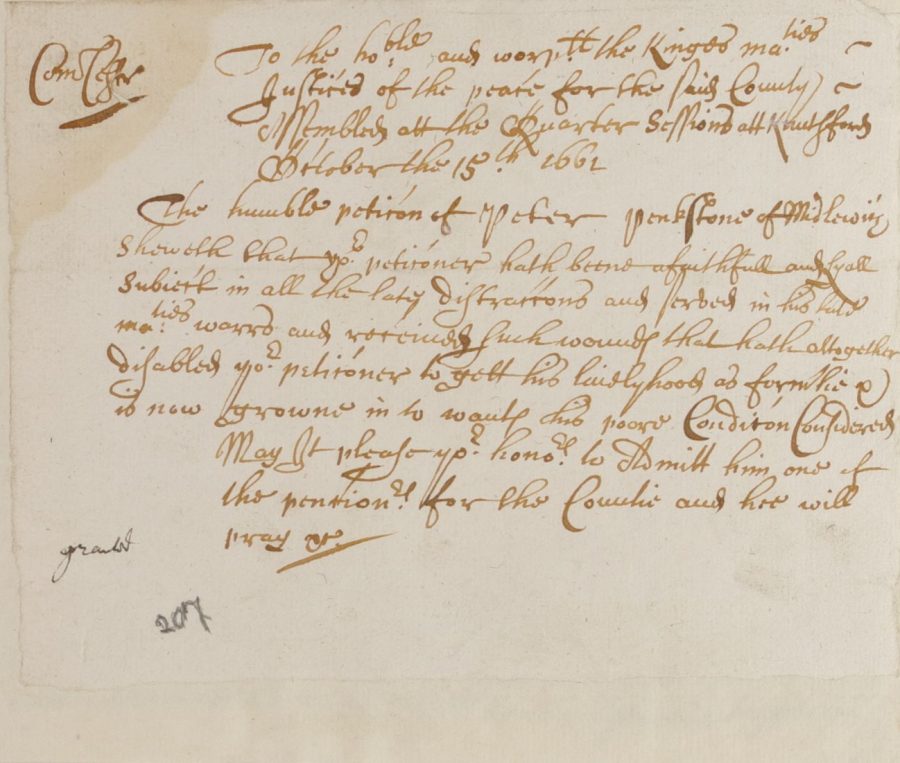 Com Cestr
To the ho:ble and worp:tt the Kinges ma:ties
Justices of the peace for the said County
Assembled att the Quarter Sessions att Knuthford
October the 15:th 1661
The humble peticon of Peter Penkstone of Midlewich
Sheweth that yo:r peticoner hath beene a faithfull and lyall
Subiect in all the late distraccons and served in his late
ma:ties warrs and received such wounds that hath altogether
disabled yo:r peticoner to gett his livelyhood as formlie
is now growne in to wants his poore Condicon Considered
May It please yo:r hono:rs to Admitt him one of
the pention:rs for the Countie and hee will
pray &c.
granted
207